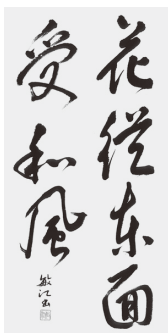 花從东面
受和風
敏江书